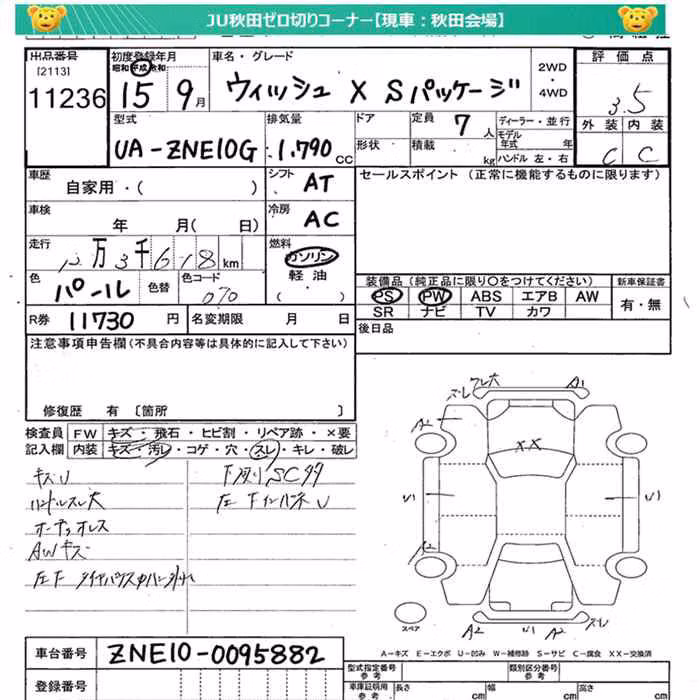 JU秋田ゼロ切りコーナー【現車：秋田会場】
出品番号 初度登録年月 車名・グレード 評価点
[2113] 昭和 平成 令和 2WD
11236 15 9月 ウィッシュ X Sパッケージ ・4WD 3.5
型式 排気量 ドア 定員 7人 ディーラー・並行 外装 内装
モデル年式 年
UA-ZNE10G 1.790CC 形状 積載 kg ハンドル 左・右 C C
車歴 シフト AT セールスポイント（正常に機能するものに限ります）
自家用・（ ）
車検 冷房 AC
年 月（ 日）
走行 燃料
12万3千618km ガソリン
色 パール 色替 色コード 070 軽油
（ ）
装備品（純正品に限り○をつけてください） 新車保証書
PS PW ABS エアB AW 有・無
SR ナビ TV カワ
R券 11730円 名変期限 月 日 後日品
注意事項申告欄（不具合内容等は具体的に記入して下さい）
修復歴 有〔箇所 〕
検査員 FW キズ・飛石・ヒビ割・リペア跡・×要
記入欄 内装 キズ・汚レ・コゲ・穴・スレ・キレ・破レ
キズU
ハンドルスレ大
オーディオレス
AWキズ
スレ A1
A2
XX
U1 U1
A2
A2 A2 スレ
スペア
A－キズ E－エクボ U－凹み W－補修跡 S－サビ C－腐食 XX－交換済
車台番号 ZNE10-0095882
型式指定番号 類別区分番号
参考 参考
登録番号 車庫証明用 参考 長さ cm 幅 cm 高さ cm